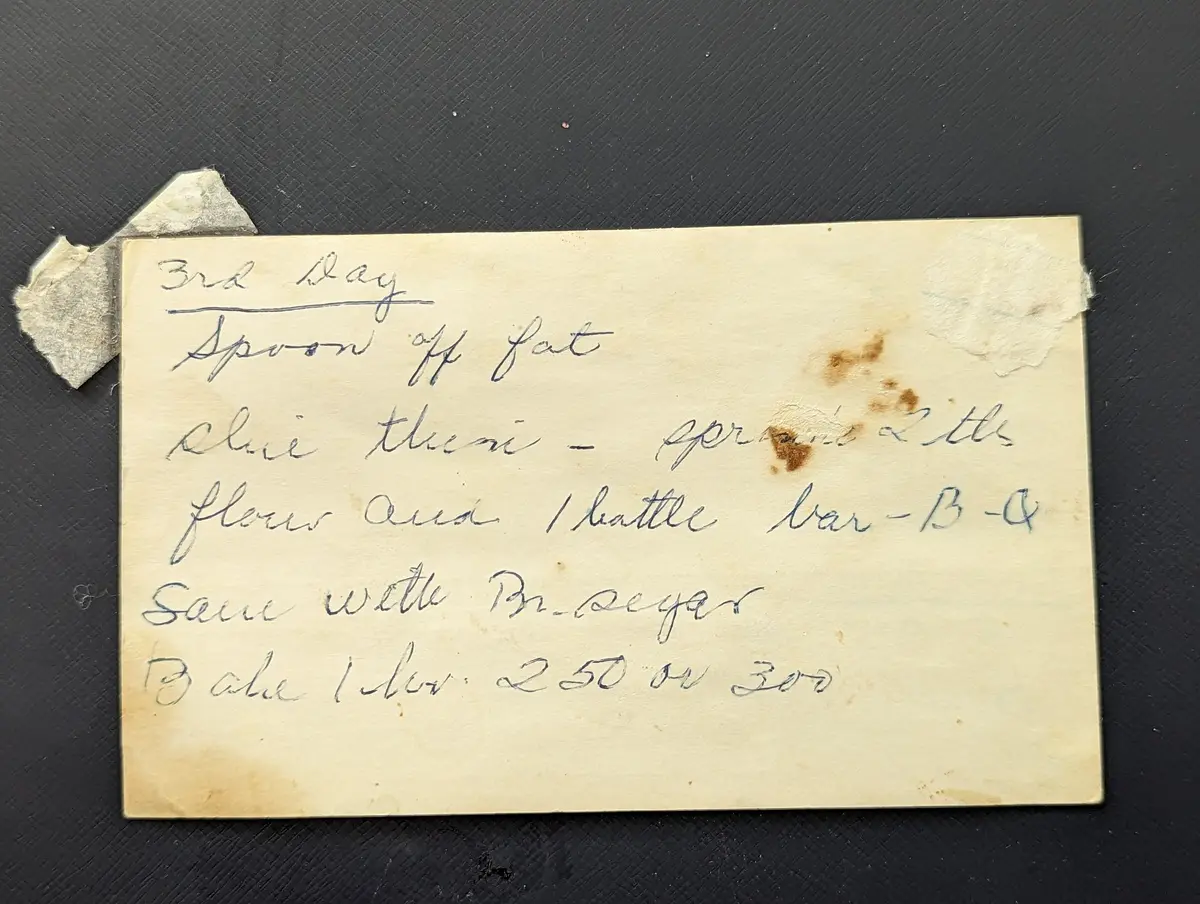 3rd Day
Spoon off fat
slice thin - sprinkle 2 tbs
flour and 1 bottle bar-B-Q
Sauce with Br. sugar
Bake 1 hr. 250 or 300